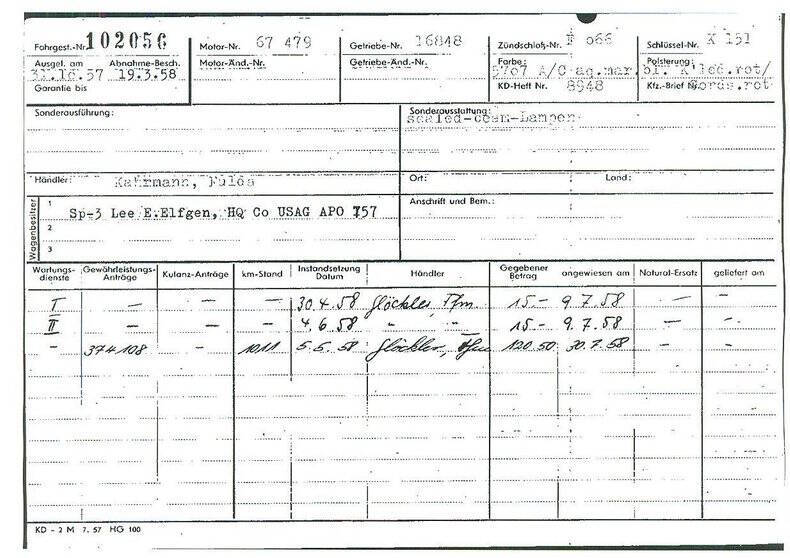 Fahrgest.-Nr. 102056 Motor-Nr. 67 479 Getriebe-Nr. 16848 Zündschloß-Nr. F 066 Schlüssel-Nr. K 151
Ausgel. am Abnahme-Besch. Motor-Änd.-Nr. Getriebe-Änd.-Nr. Farbe: Polsterung:
31.10.57 19.3.58 5707 A/C-ag.mar.bl. K led.rot/
Garantie bis KD-Heft Nr. 8948 Kfz.-Brief Nr. Bords.rot
Sonderausführung: Sonderausstattung:
sealed-beam-Lampen
Händler: Kahrmann, Fulda Ort: Land:
Wagenbesitzer
1 Sp-3 Lee E.Elfgen, HQ Co USAG APO 757 Anschrift und Bem.:
2
3
Wartungs-dienste Gewährleistungs-Anträge Kulanz-Anträge km-Stand Instandsetzung Datum Händler Gegebener Betrag angewiesen am Natural-Ersatz geliefert am
I — — — 30.4.58 Glöckler, Ffm. 15.- 9.7.58 —
II — — — 4.6.58 " " 15.- 9.7.58 — -
- 374108 - 1011 5.5.58 Glöckler, Ffm 120.50 30.7.58 - -
KD - 2 M 7. 57 HG 100